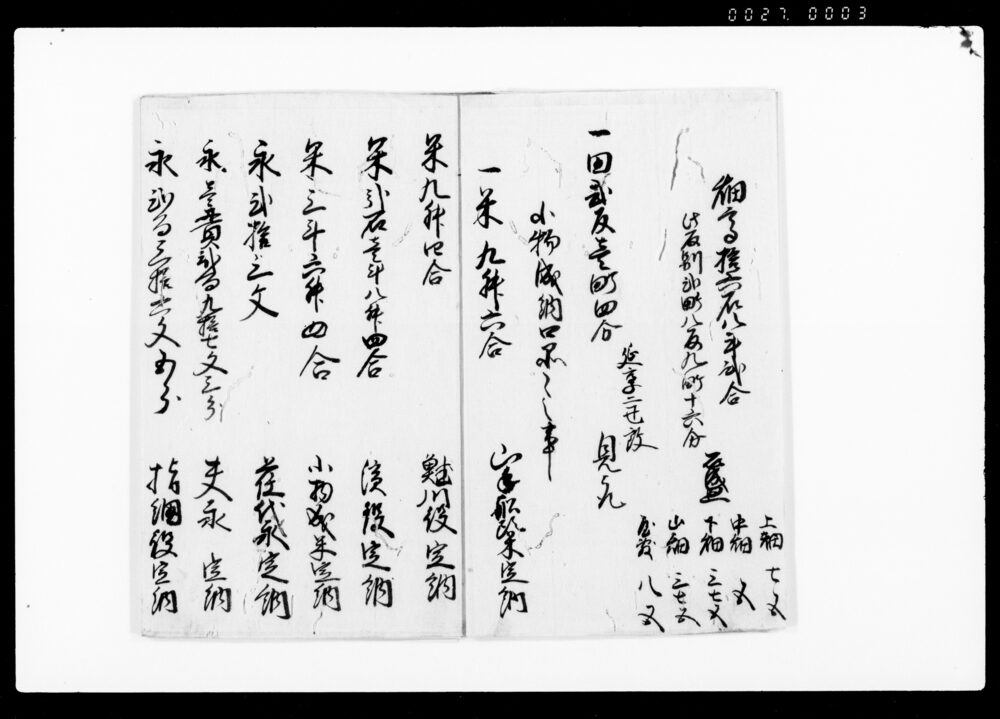 0027.0003
畑高拾六石八斗弐合
此反別弐町八反九町十六分
上畑 七
中畑
下畑 三七
山畑 三七
屋敷 八
一田弐反壱町四分
延享二 改
見
小物成納口 之事
一米九舛六合 山手船 米定納
米九舛四合 川役定納
米弐石壱斗八舛四合 濱役定納
米三斗六舛四合 小物成米定納
永弐拾三文 荏代永定納
永壱貫弐百九拾七文三分 夫永定納
永弐百三拾六文五分 指網役定納